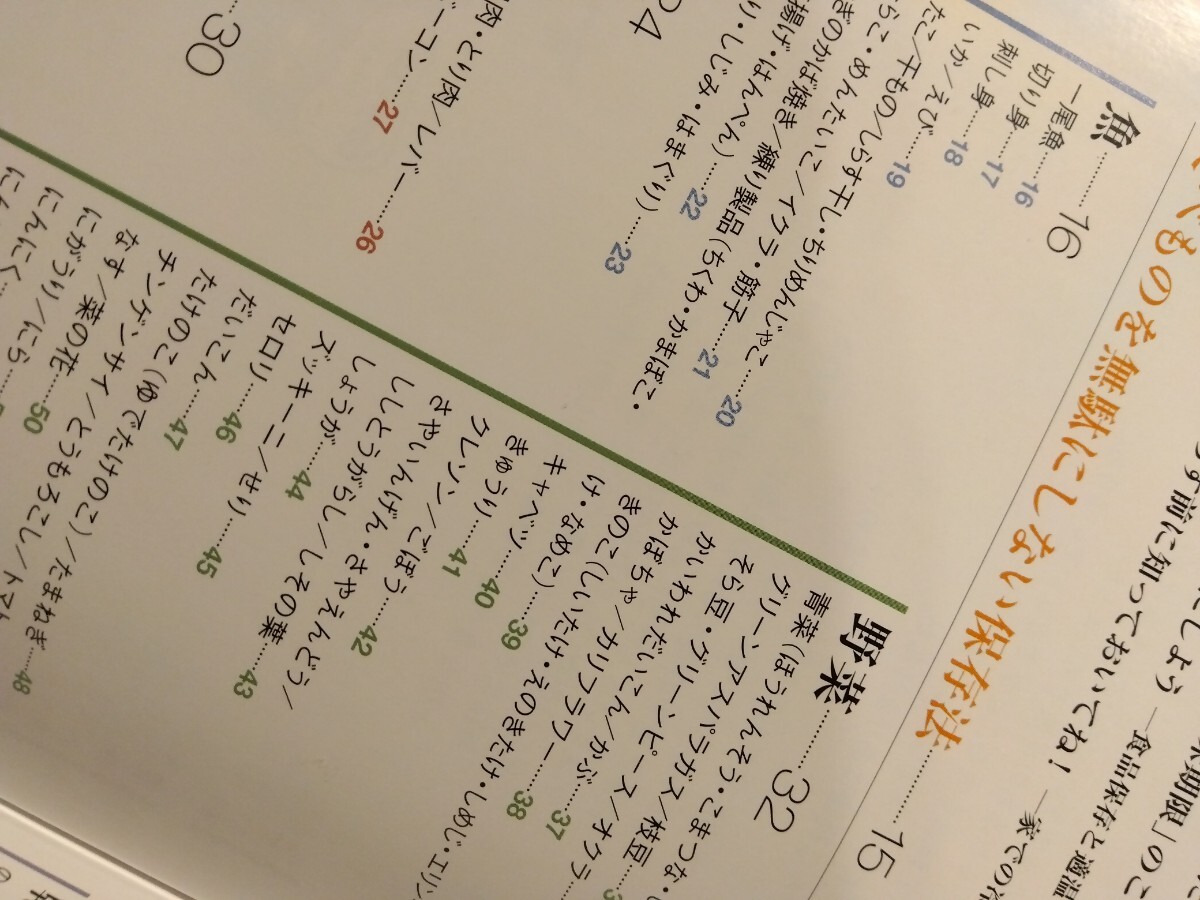 ものを無駄にしない保存法……15
す前に知っておいてね！
にしよう
食品保存と適温
家での冷
期限」のこ
魚……16
一尾魚……16
切り身……17
刺し身……18
いか／えび……19
たこ／干もの／しらす干し・ちりめんじゃこ……20
らこ・めんたいこ／イクラ・筋子……21
ぎのかば焼き／練り製品（ちくわ・かまぼこ・
揚げ・はんぺん）……22
り・しじみ・はまぐり）……23
24
肉・とり肉／レバー……26
ーコン……27
30
野菜……32
青菜（ほうれんそう・こまつな・
グリーンアスパラガス／枝豆
そら豆・グリーンピース／オクラ
かいわれだいこん／かぶ……37
かぼちゃ／カリフラワー……38
きのこ（しいたけ・えのきたけ・しめじ・エリン
け・なめこ）……39
キャベツ……40
きゅうり……41
クレソン／ごぼう……42
さやいんげん・さやえんどう／
ししとうがらし／しその葉……43
しょうが……44
ズッキーニ／せり……45
セロリ……46
だいこん……47
たけのこ（ゆでたけのこ）／たまねぎ……48
チンゲンサイ／とうもろこし／トマト
なす／菜の花……50
にがうり／にら
にんにく